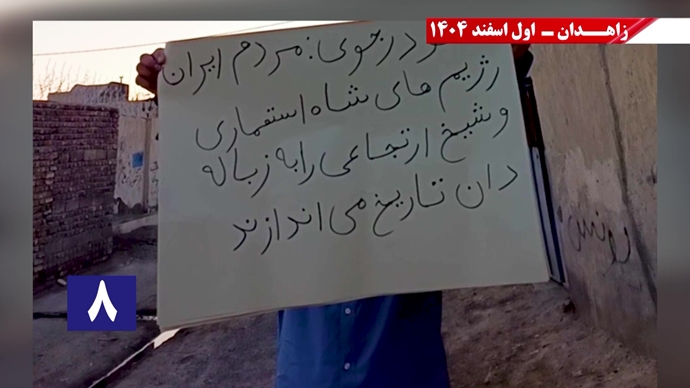 زاهـدان ـ اول اسفند ۱۴۰۴
ود رجوی: مردم ایران
رژیم های شاه استعماری
و شیخ ارتجاعی را به زباله
دان تاریخ می اندازند
۸